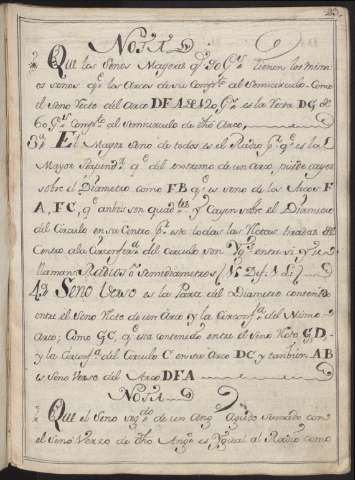 NOTA
Que los Senos Mayores q.e 90 G.s tienen los mism
os senos q.e los Arcos de su Compto. al Semicirculo. Como
el Seno Recto del Arco DFA de 120 G.s es la Recta DG de
60 G.s Compto. al Semicirculo de dho Arco,
3.a El Mayor Seno de todos es el Radio p.r q.e es la
Mayor Perpend.r q.e del extremo de un Arco, puede caer
sobre el Diametro como FB q.e es seno de los Arcos F
A, FC, q.e ambos son quad.tes y Cayen sobre el Diametro
del Circulo en su Centro B. este todas las Rectas tiradas del
Centro a la Circonf.a del circulo son Yg.s entre si y se
llaman Radios o Semidiametros
4.a Seno Verso es la Parte del Diametro contenida
entre el Seno Recto de un Arco y la Circonf.a del Mismo
Arco; Como GC, q.e esta contenido entre el Seno Recto GD
y la Circonf.a del Circulo C en su Arco DC y tambien AB
es Seno Verso del Arco DFA
NOTA
Que el Seno seg.do de un Ang.o Agudo sumado con
el Seno Verso de dho Ang.o es Ygual al Radio como